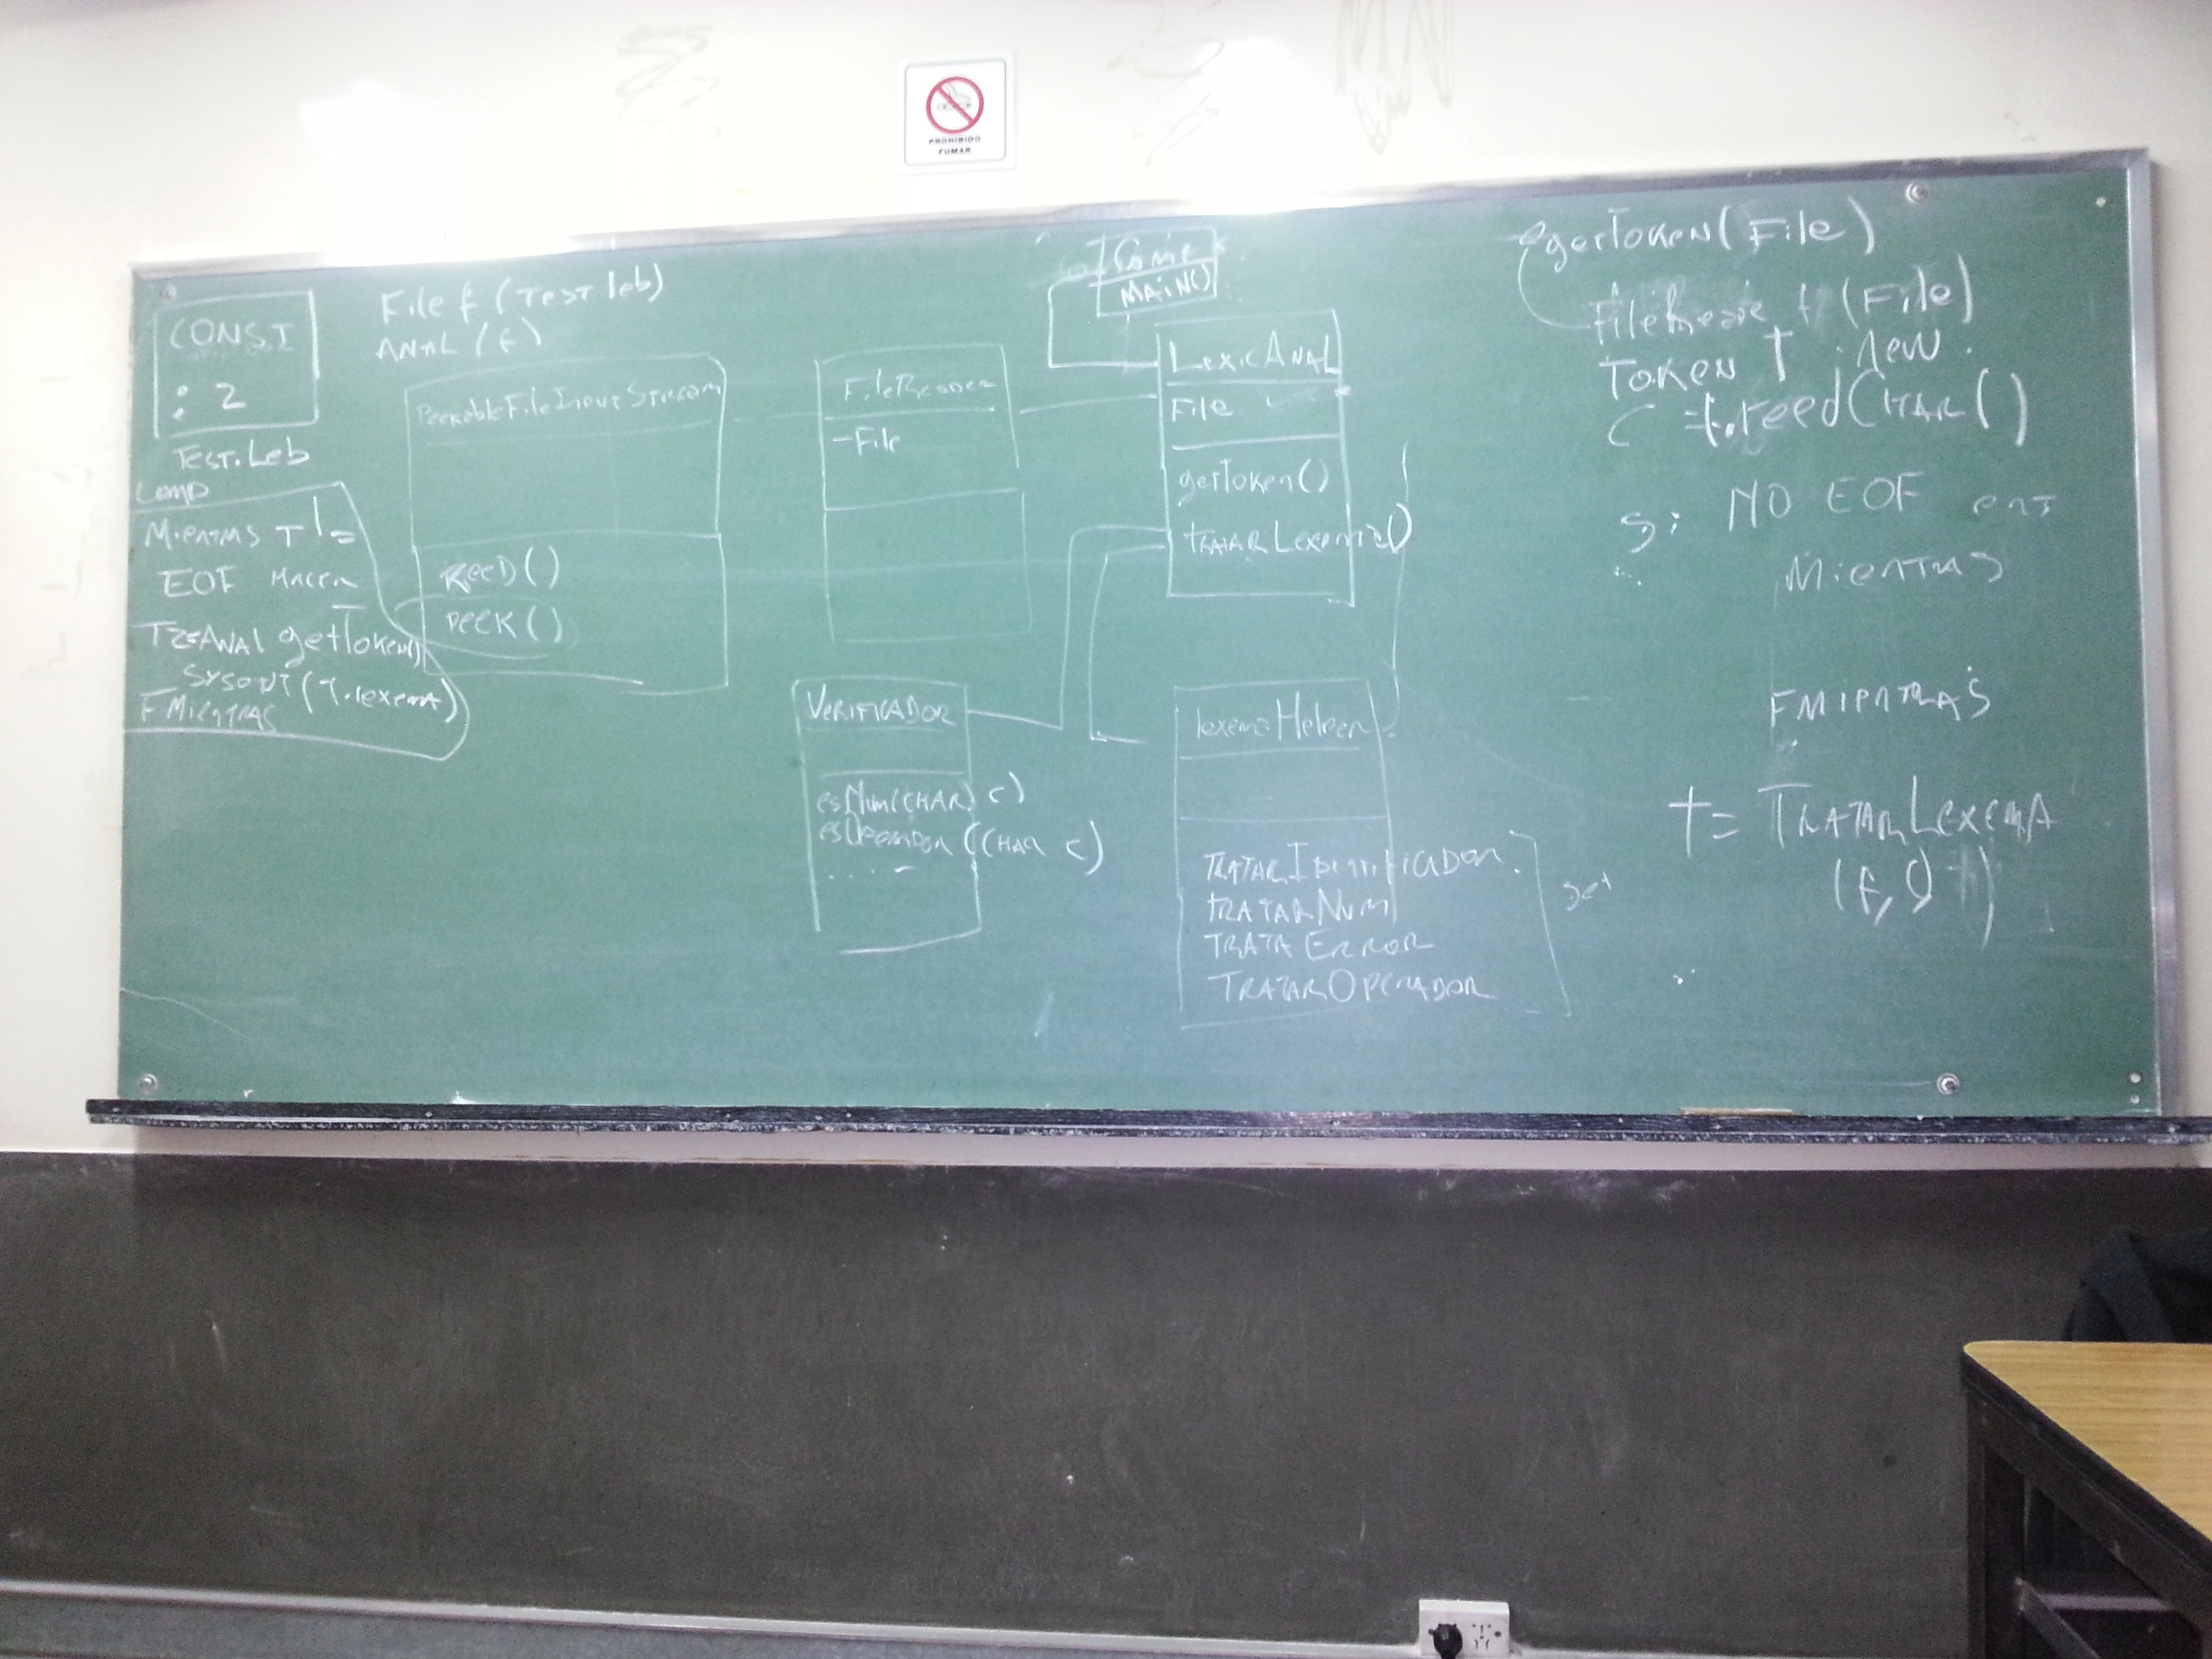 PROHIBIDO
FUMAR
CONST
: 2
Test.Leb
Comp
Mientras T !=
EOF Hacer
T=ANAL getToken()
SYSOUT(T.lexema)
FMientras
File f (Test leb)
ANAL (f)
PeekableFileInputStream
ReeD()
Peek()
FileReader
-File
MAIN()
LexicAnal
File
getToken()
tratarLexema()
Verificador
esNum(CHAR c)
esOperador(CHAR c)
....
lexemaHelper
TratarIdentificador
tratarNum
Trata Error
TratarOperador
getToken(File)
(File)
Token T : new
C = f.reedChar()
Si NO EOF
Mientras
FMientras
t= TratarLexema